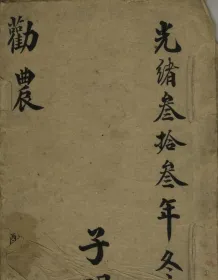 光緒叁拾叁年冬
子
勸農